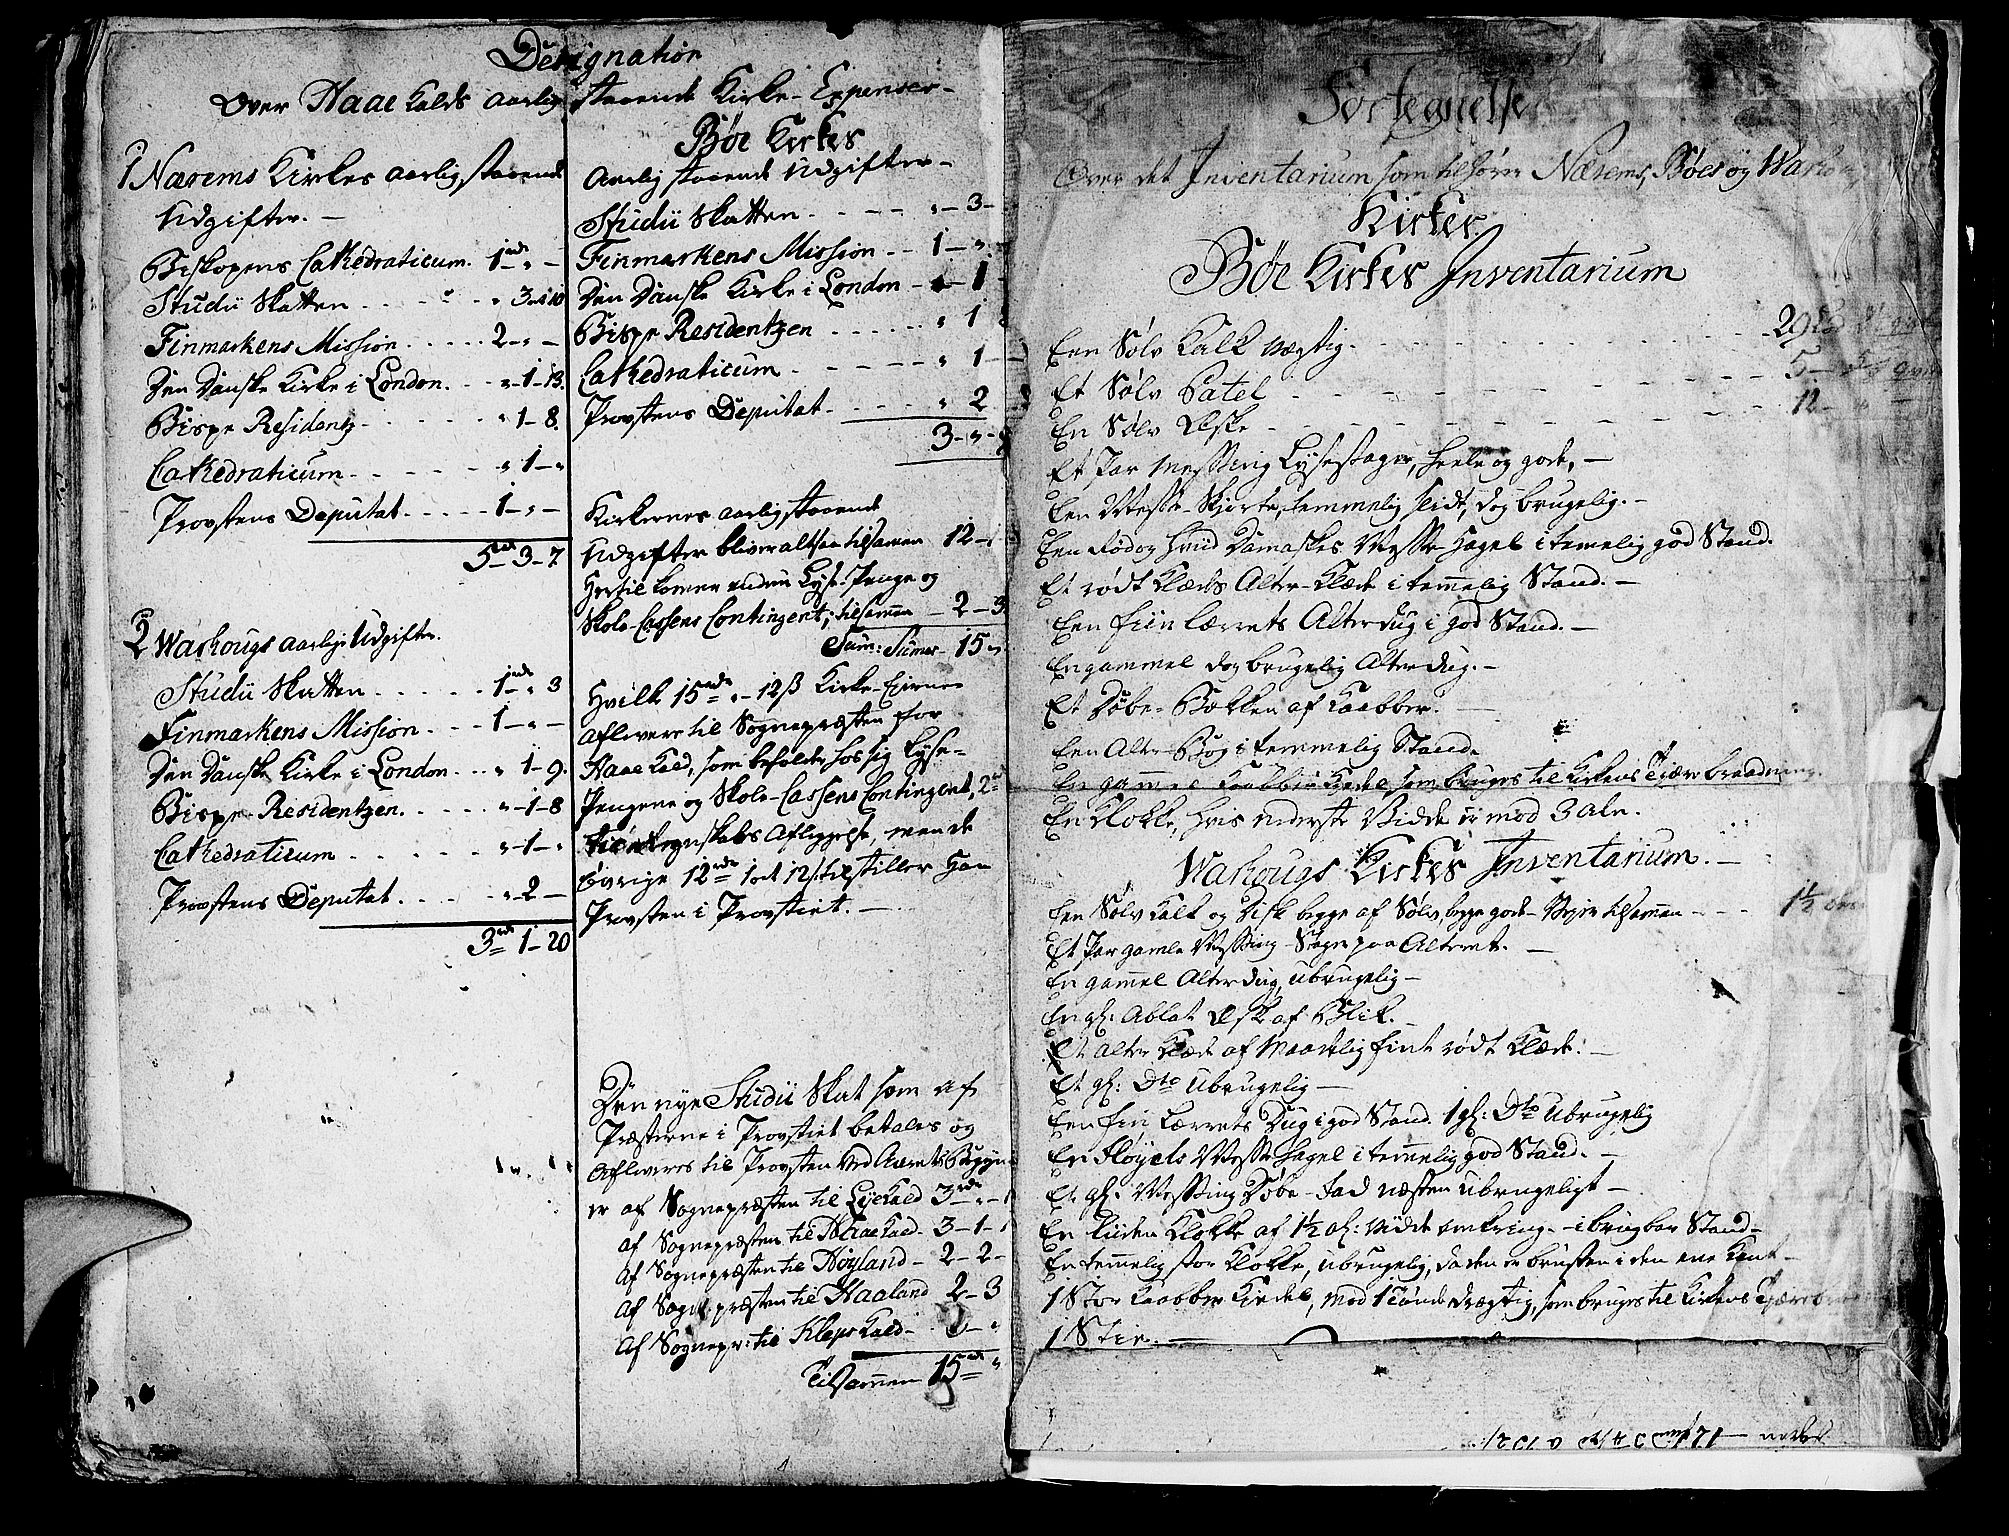 Designation
Over Haae Kalds aarlig staaende Kirke-Expenser-
1 Nærems Kirkes aarlig staaende
Udgifter. -
Biskopens Cathedraticum. 1 rd " -
Studii Skatten . . . " 3 - 10
Finmarkens Mission . . . . . 2 - " -
Den Danske Kirke i London. . . " - 1 - 13.
Bispe Residentz . . . " 1 - 8.
Cathedraticum . . . " 1 - "
Provstens Deputat . . . . . 1 - " -
5 rd 3 - 7
2 Warhougs aarlige Udgifter.
Studii Skatten . . . . . 1 rd " 3
Finmarkens Mission . . . 1 - " -
Den Danske Kirke i London . . . " 1 - 9.
Bispe Residentzen. . . . " - 1 - 8
Cathedraticum . . . . " - 1 - "
Provstens Deputat . . . . " - 2 -
3 rd 1 - 20
Bøe Kirkes
Aarlig staaende Udgifter -
Studii Skatten . . . . " - 3 -
Finmarkens Mission . . 1 - " -
Den Danske Kirke i London - " - 1
Bispe Residentzen . . . . . . " 1
Cathedraticum . . . . " 1 -
Provstens Deputat . . . . " 2
3 - " -
Kirkernes aarlig staaende
Udgifter bliver altsaa tilsamen 12 -
Hertil komer endnu Lyse-Penge og
Skole-Cassens Contingent, tilsamen - 2 - 3.
Sum: Sumar. 15 "
Hvilke 15 rd " - 12 ß Kirke-Ejerne
aflevere til Sognepræsten for
Haae Kald, som beholder hos sig Lyse-
Pengene og Skole-Cassens Contingent, 2
Regnskabs Aflæggelse, men de
øvrige 12 rd 1 ort 12 ß tilstiller Han
Provsten i Provstiet. -
Den nye Studii Skat som af
Præsterne i Provstiet betales og
afleveres til Provsten ved Aarets Begyn
er af Sognepræsten til Lye Kald 3 rd " -
af Sognepræsten til Haae Kald. 3 - 1 -
af Sognepræsten til Høyland - 2 - 2 -
af Sognepræsten til Haaland 2 - 3
af Sognepr: til Klep Kald -
Tilsammen 15 rd "
Fortegnelse
Over det Inventarium som tilhører Nærems, Bøes og Warhou
Kirker.
Bøe Kirkes Inventarium
Een Sølv Kalk vægtig. . . . 29 Lod
Et Sølv Patel . . . 5 -
En Sølv Æske . . . 12 - " -
Et Par Messing Lysestager, heele og gode, -
Een Messe-Skjorte, temmelig slidt, dog brugelig. -
Een Rød og hvid Damaskes Messe Hagel i temelig god Stand.
Et rødt Klædes Alter-Klæde i temelig Stand. -
Een fiin Lærrets Alterdug i god Stand. -
En gammel dog brugelig Alterdug. -
Et Døbe-Bækken af Kaabber. -
Een Alter-Bog i temmelig Stand.
En gammel Kaabber Kiedel, som bruges til Kirkens Tjærebreedning.
En Klokke, hvis nederste Vidde er mod 3 aln.
Wahougs Kirkes Inventarium. -
Een Sølv Kalk og Disk begge af Sølv, begge gode - Veyer tilsammen - - - 1½
Et Par gamle Messing-Stager paa Alteret. -
En gammel Alterdug, ubrugelig -
En gl: Ablat Æske af Blik. -
Et Alter Klæde af maadelig fint rødt Klæde. -
Et gl: Dto Ubrugelig -
Een fin Lærrets Dug i god Stand. 1 gl: Dto Ubrugelig
En Fløyels Messe Hagel i temmelig god Stand. -
Et gl: Messing Døbe-Fad næsten ubrugeligt -
En liiden Klokke af 1½ al: Vidde omkring - i brugbar Stand -
En temmelig stor Klokke, ubrugelig, da den er brusten i den ene Kant -
1 Stor Kaabber Kiedel, mod 1 Tønde drægtig, som bruges til Kirkens Tjærebre
1 Stie. -